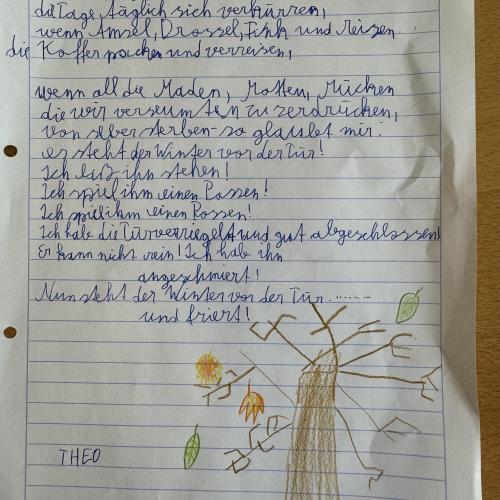 die Tage, täglich sich verkürren,
wenn Amsel, Drossel, Fink und Meisen
die Koffer packen und verreisen,
wenn all die Maden, Motten, Mücken
die wir verseumten zu zerdrücken,
von selber sterben - so glaubet mir:
es steht der Winter vor der Tür!
Ich laß ihn stehen!
Ich spiel ihm einen Possen!
Ich spiel ihm einen Possen!
Ich hab die Tür verriegelt und gut abgeschlossen!
Er kann nicht rein! Ich hab ihn
angeschmiert!
Nun steht der Winter vor der Tür.......
und friert!
THEO